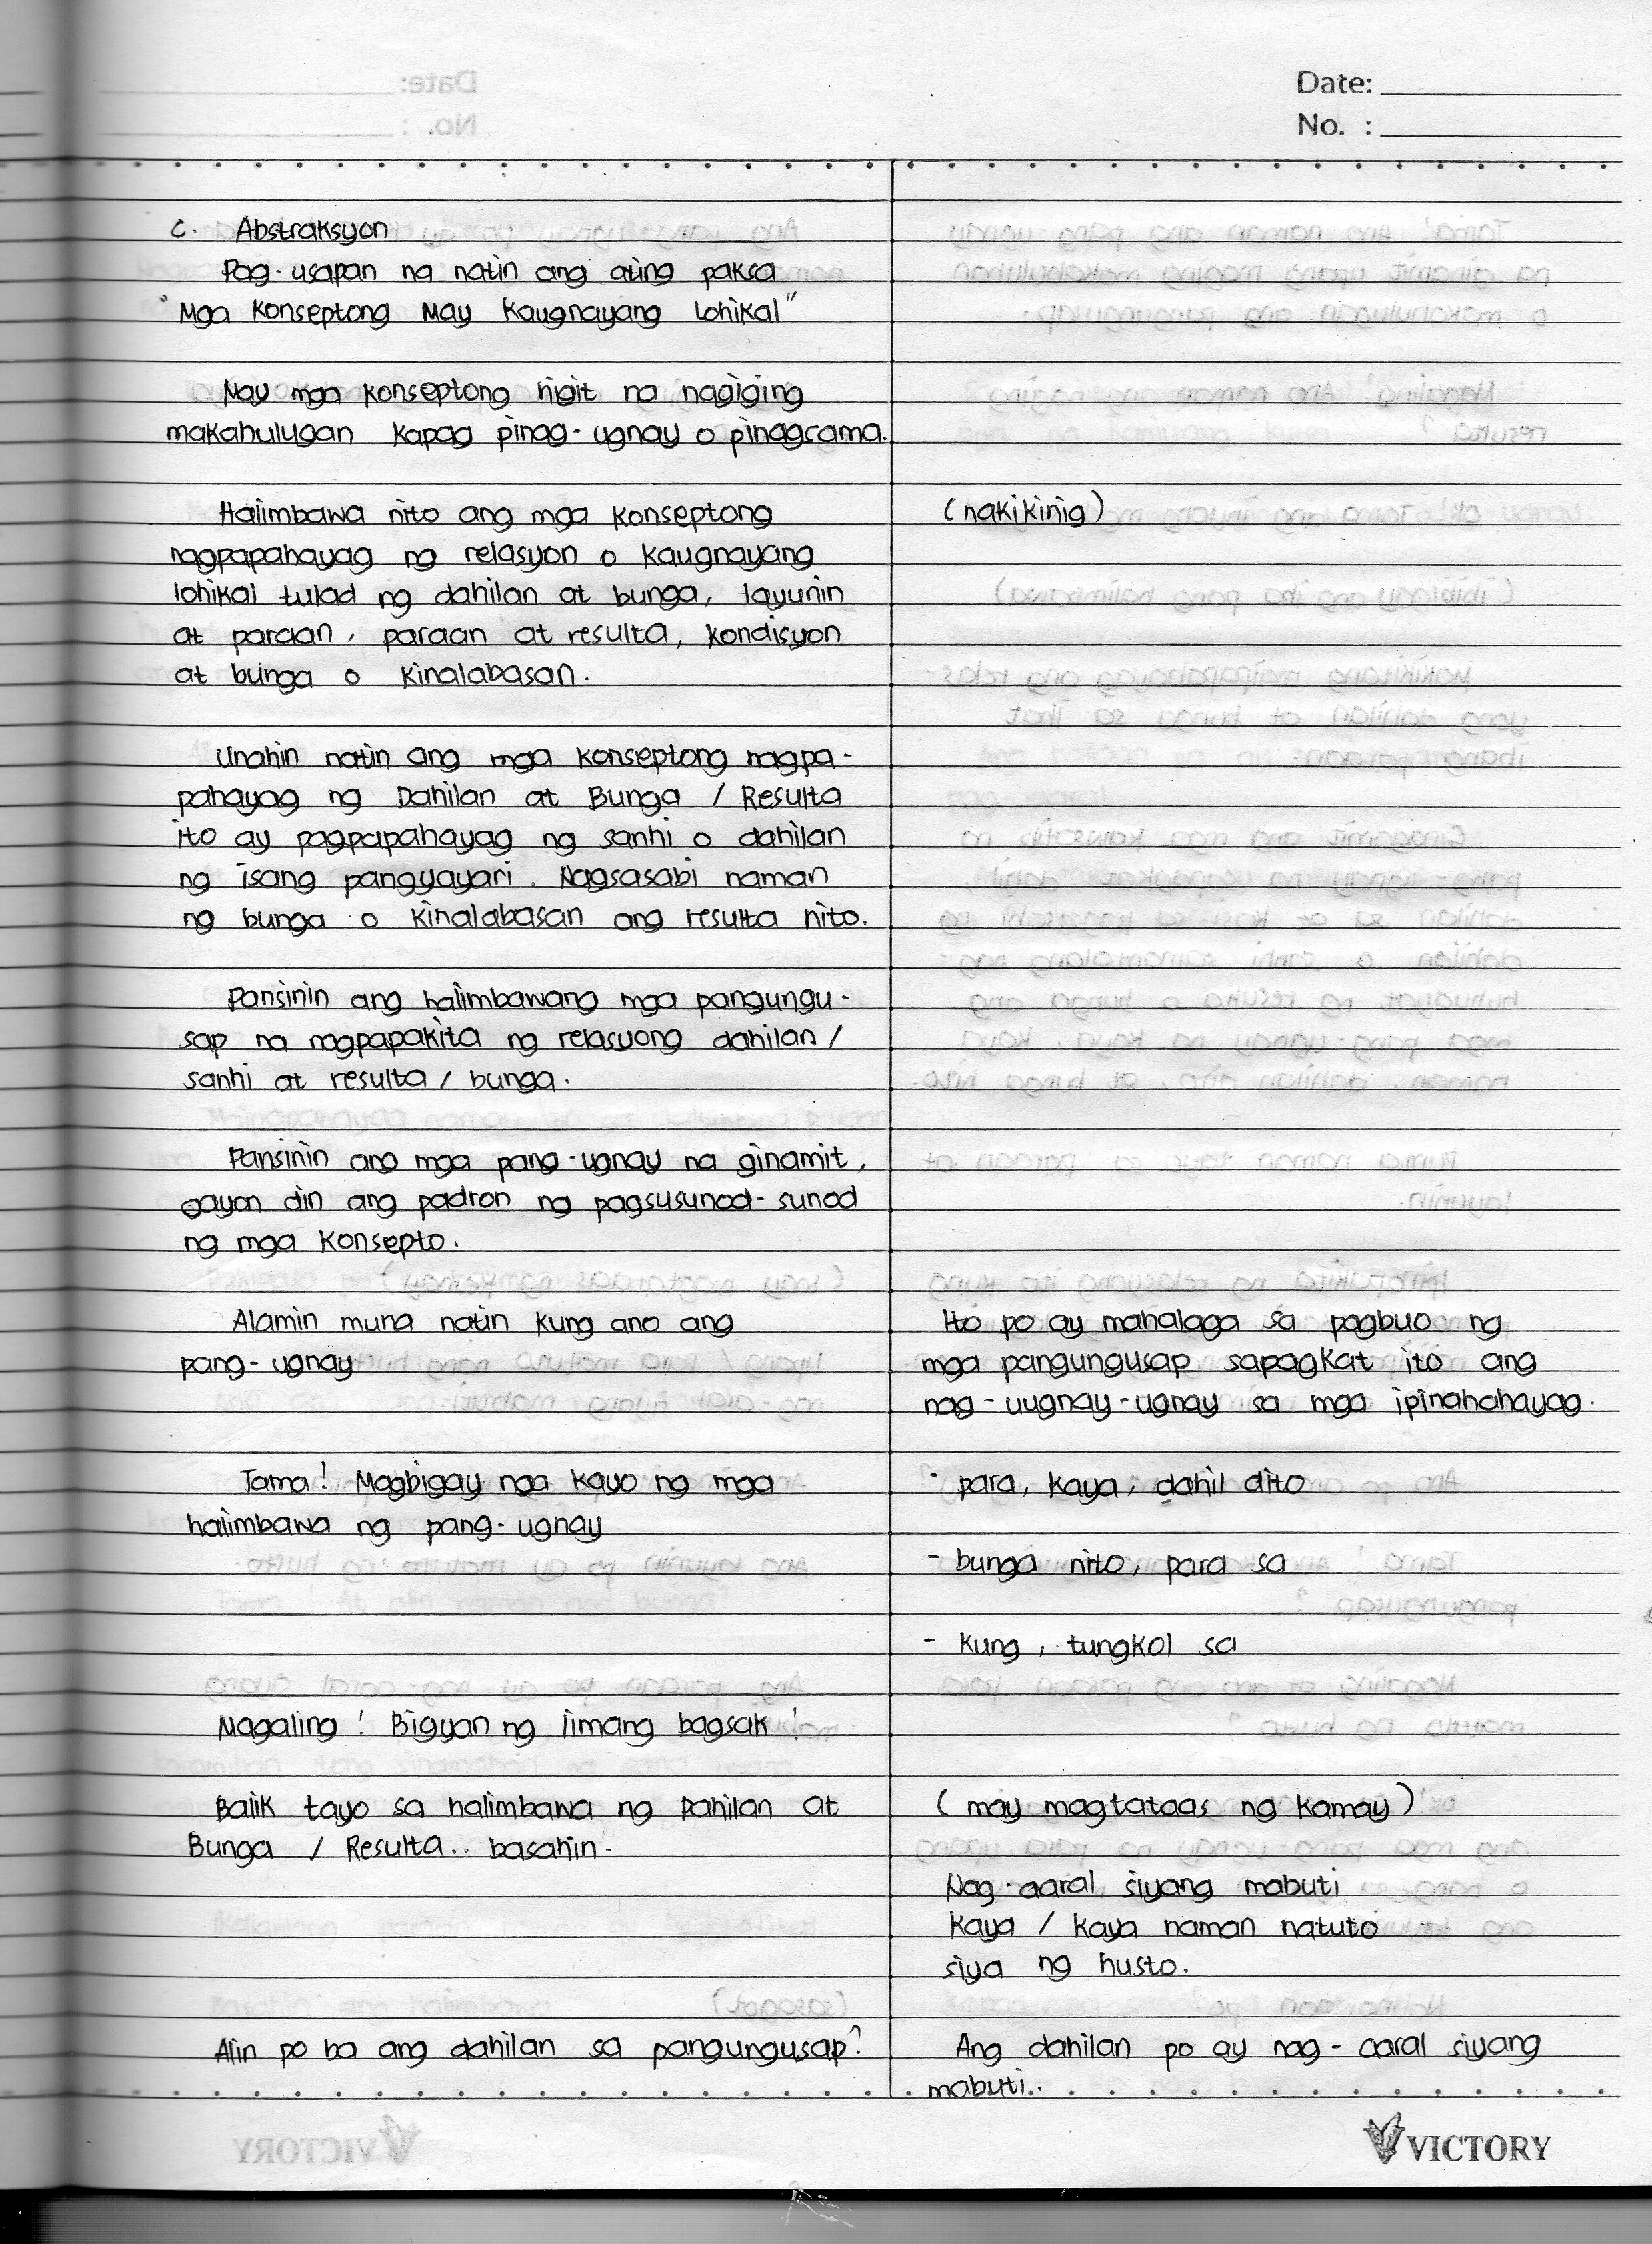 Date:
No. :
c. Abstraksyon
Pag-usapan na natin ang ating paksa
"Mga Konseptong May Kaugnayang Lohikal"
May mga konseptong higit na nagiging
makahulugan kapag pinag-ugnay o pinagsama.
Halimbawa nito ang mga konseptong
nagpapahayag ng relasyon o kaugnayang
lohikal tulad ng dahilan at bunga, layunin
at paraan, paraan at resulta, kondisyon
at bunga o kinalabasan.
(nakikinig)
Unahin natin ang mga konseptong nagpa-
pahayag ng Dahilan at Bunga / Resulta
ito ay pagpapahayag ng sanhi o dahilan
ng isang pangyayari. Nagsasabi naman
ng bunga o kinalabasan ang resulta nito.
Pansinin ang halimbawang mga pangungu-
sap na nagpapakita ng relasyong dahilan /
sanhi at resulta / bunga.
Pansinin ang mga pang-ugnay na ginamit,
gayon din ang padron ng pagsusunod-sunod
ng mga konsepto.
Alamin muna natin kung ano ang
pang-ugnay
Ito po ay mahalaga sa pagbuo ng
mga pangungusap sapagkat ito ang
nag-uugnay-ugnay sa mga ipinahahayag.
Tama! Magbigay nga kayo ng mga
halimbawa ng pang-ugnay
- para, kaya, dahil dito
- bunga nito, para sa
- kung, tungkol sa
Magaling! Bigyan ng limang bagsak!
Balik tayo sa halimbawa ng Dahilan at
Bunga / Resulta.. basahin.
(may magtataas ng kamay)
Nag-aaral siyang mabuti
kaya / kaya naman natuto
siya ng husto.
Alin po ba ang dahilan sa pangungusap?
Ang dahilan po ay nag-aaral siyang
mabuti..
VICTORY